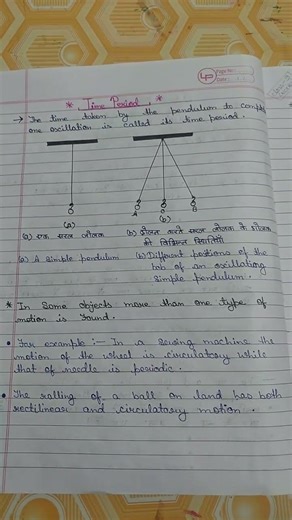 LP
Page No.
Date:
* Time Period . *
→ The time taken by the pendulum to complete
one oscillation is called its time period.
O
A
O
B
(a)
(b)
(a) एक सरल लोलक
(b) दोलन करते सरल लोलक के लोलक
की विभिन्न स्थितियाँ
(a) A simple pendulum
(b) Different positions of the
bob of an oscillating
simple pendulum.
* In Some objects more than one type of
motion is found.
• For example :— In a Sewing machine the
motion of the wheel is circulatory while
that of needle is periodic.
• The rolling of a ball on land has both
rectilinear and circulatory motion .